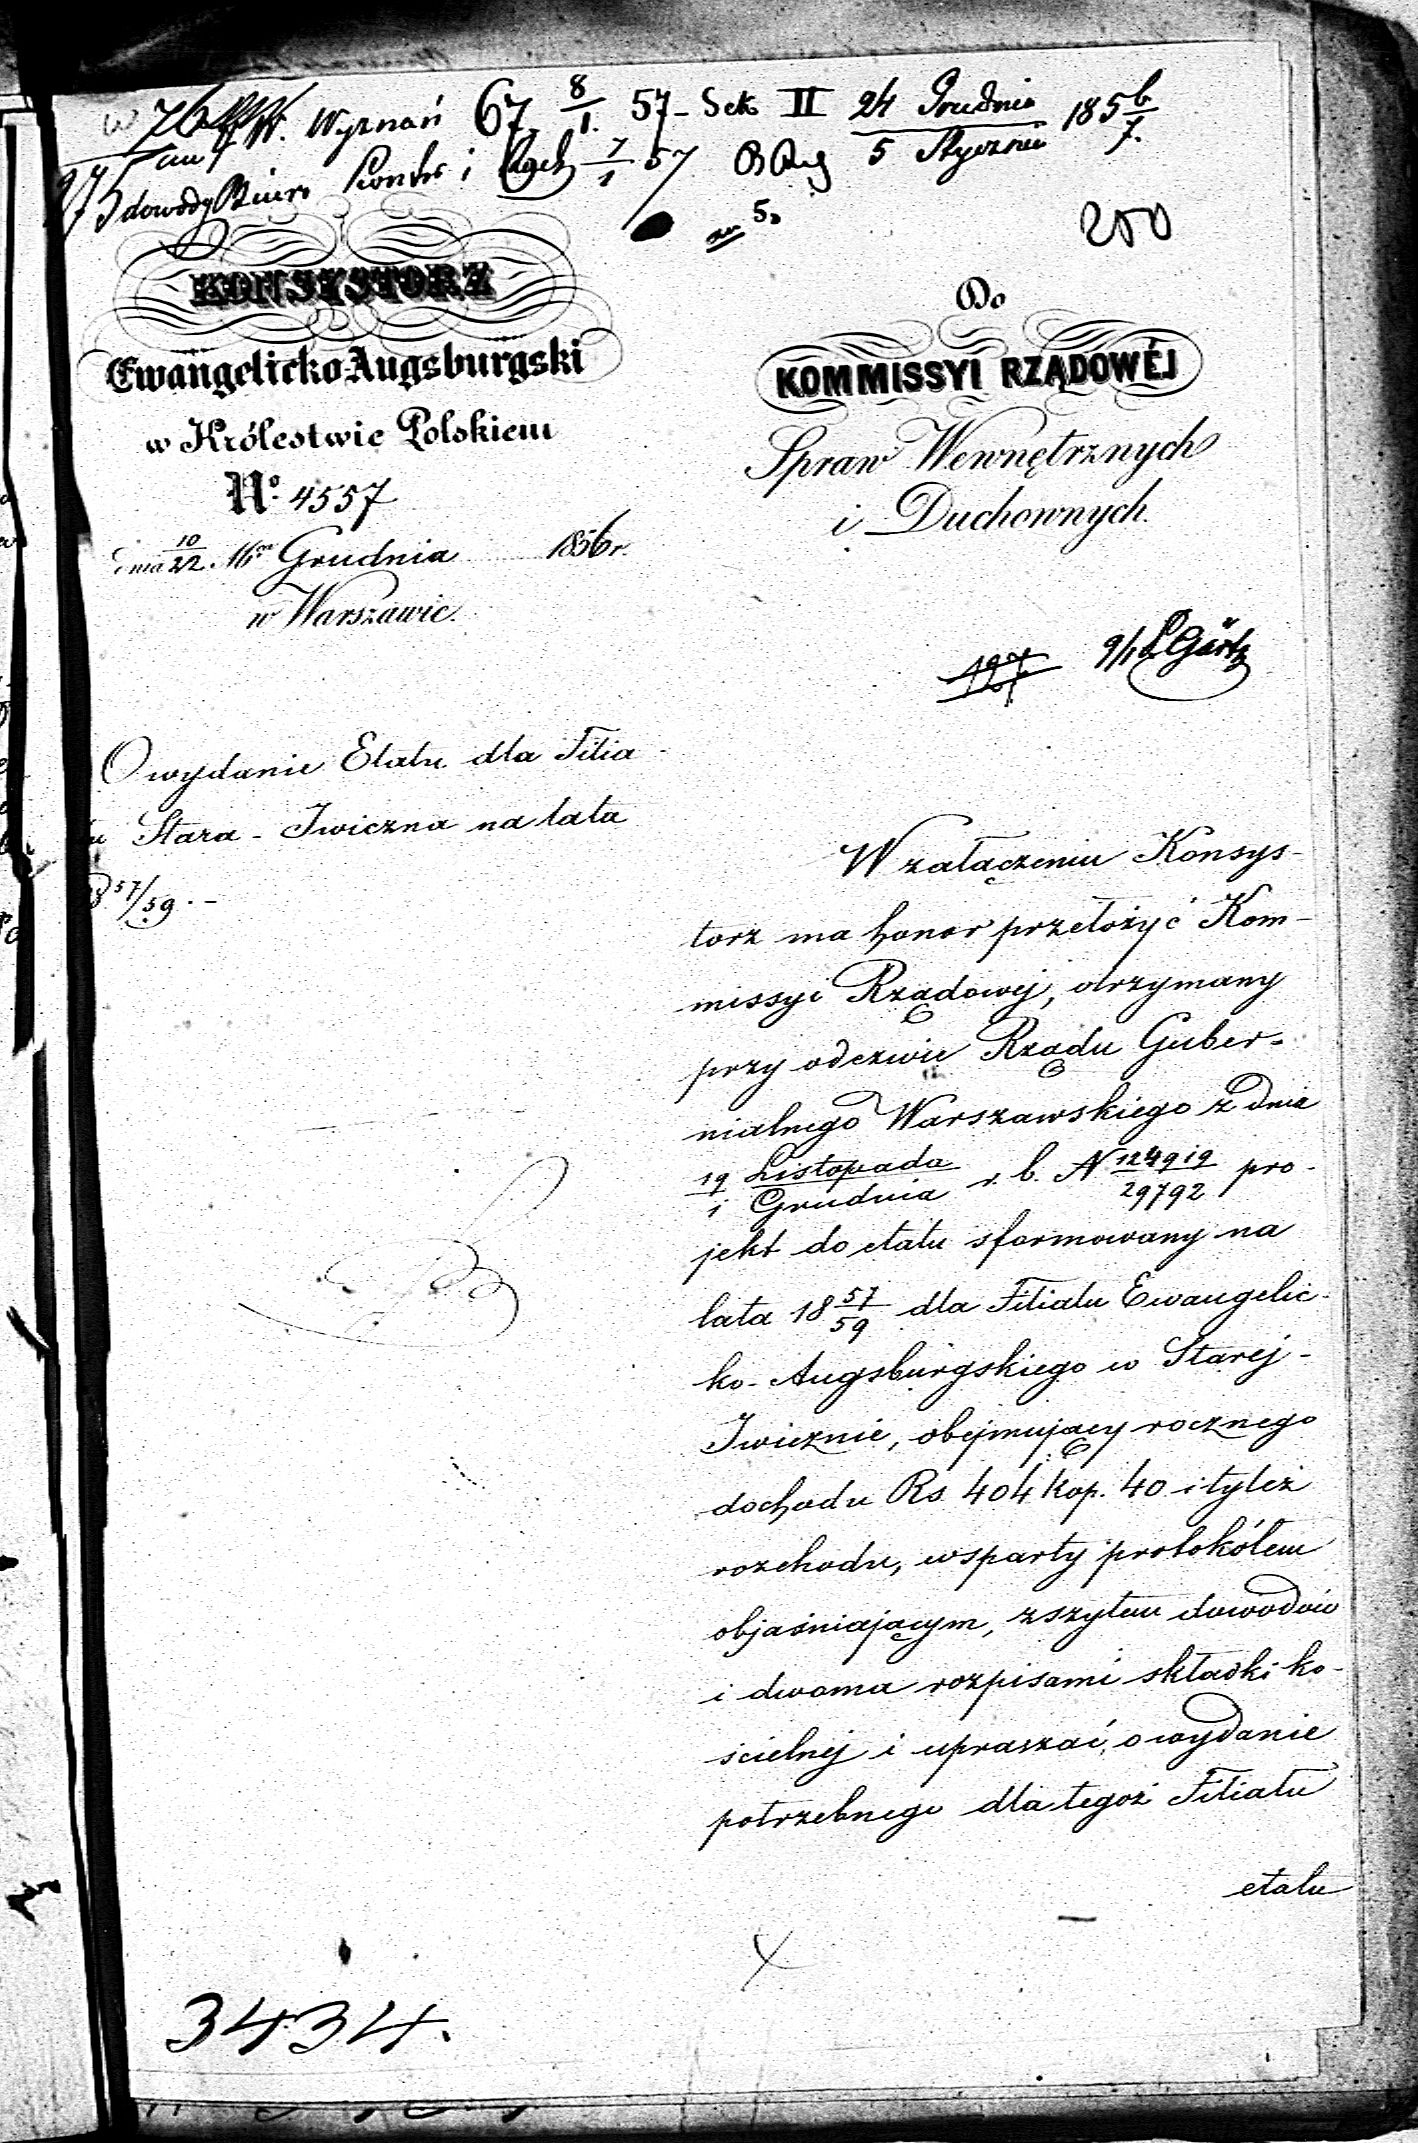 Wyznań 67 8/1. 57 - Sek II 24 Grudnia 1856
5 Stycznia 7.
dowody Biuro Kontr i Rach 7/1 57
5.
200
KONSYSTORZ
Ewangelicko-Augsburgski
w Królestwie Polskiem
No. 4557
dnia 10/22. 16m Grudnia 1856 r.
w Warszawie.
Do
KOMMISSYI RZĄDOWÉJ
Spraw Wewnętrznych
i Duchownych.
O wydanie Etatu dla Filia-
łu Stara-Iwiczna na lata
57/59.-
W załączeniu Konsys-
torz ma honor przełożyć Kom-
missyi Rządowej, otrzymany
przy odezwie Rządu Guber-
nialnego Warszawskiego z dnia
19 Listopada / 1 Grudnia r. b. N 124919/29792 pro-
jekt do etatu sformowany na
lata 18 57/59 dla Filiału Ewangelic-
ko-Augsburgskiego w Starej-
Iwicznie, obejmujący rocznego
dochodu Rs 404 kop. 40 i tyleż
rozchodu, wsparty protokółem
objaśniającym, zszytem dowodów
i dwoma rozpisami składki ko-
ścielnej i upraszać, o wydanie
potrzebnego dla tegoż Filiału
etatu
3434.